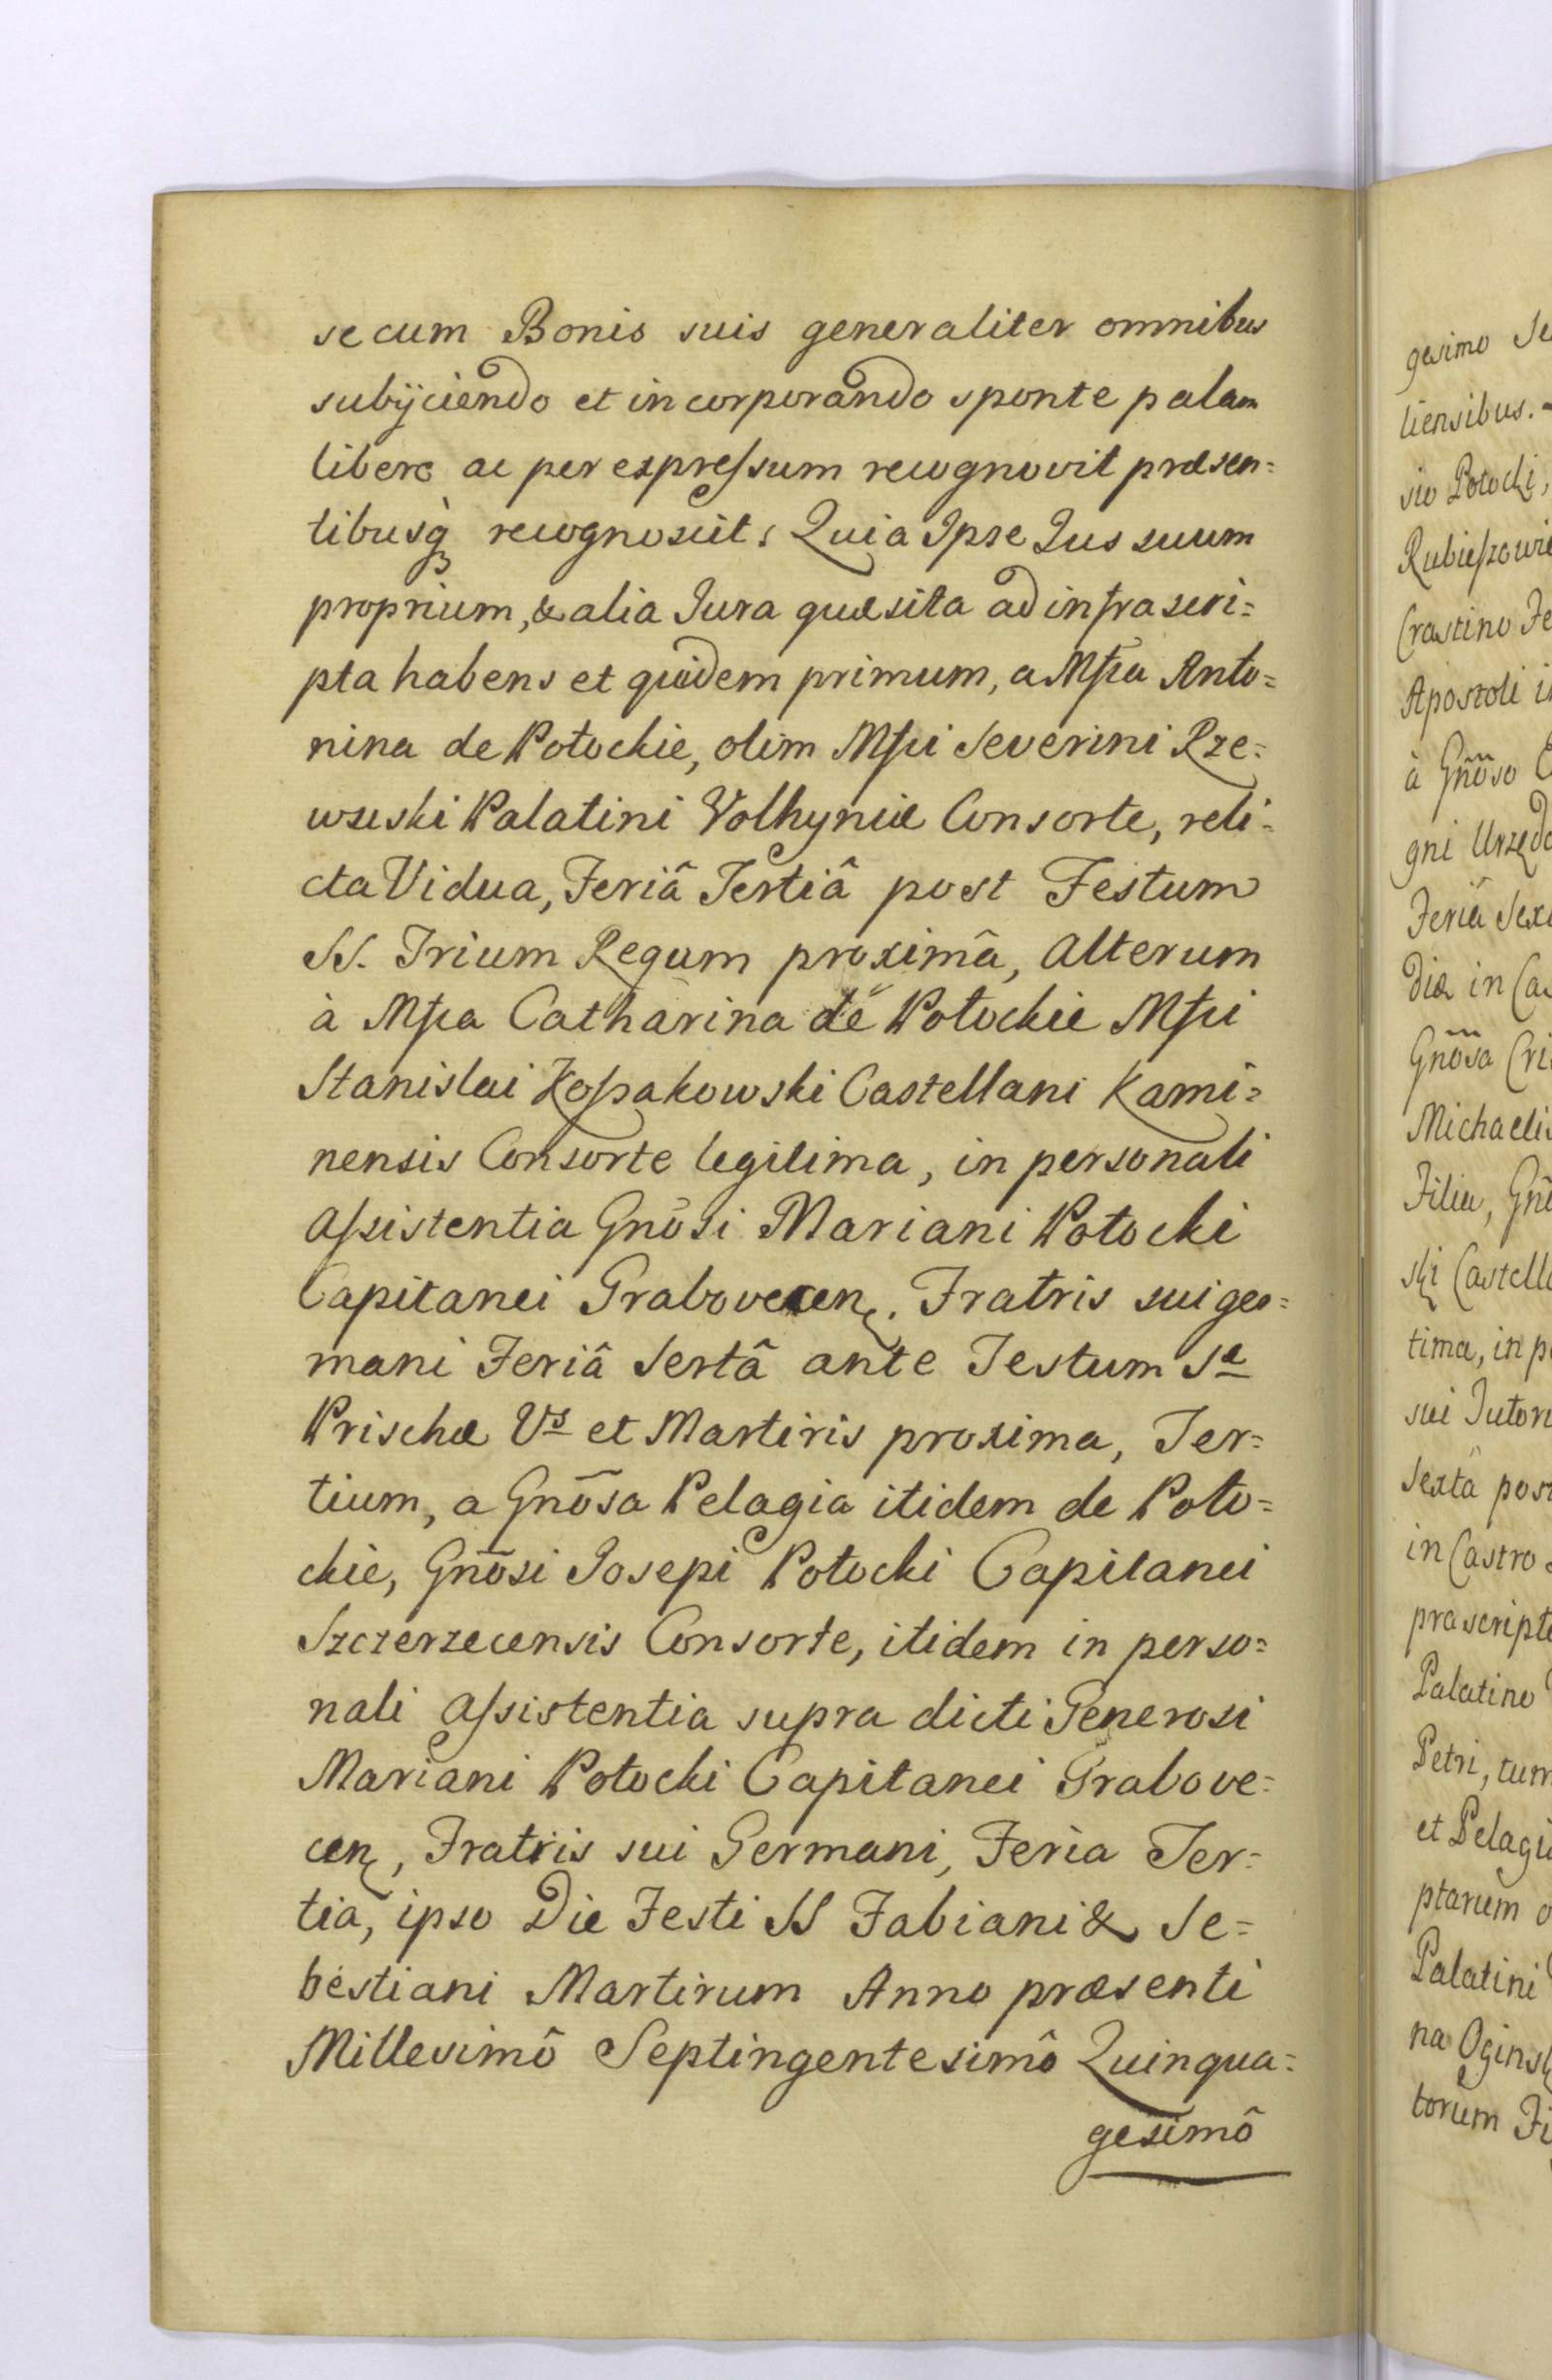 se cum Bonis suis generaliter omnibus
subijciendo et incorporando sponte palam
libere ac per expressum recognovit præsen=
tibusq recognoscit: Quia Ipse Jus suum
proprium, & alia Jura quæsita ad infrascri=
pta habens et quidem primum, a Mfca Anto=
nina de Potockie, olim Mfci Severini Rze=
wuski Palatini Volhyniæ Consorte, reli=
cta Vidua, Feriâ Tertiâ post Festum
SS. Trium Regum proximâ, Alterum
à Mfca Catharina de Potockie Mfci
Stanislai Kossakowski Castellani Kami=
nensis Consorte legitima, in personali
Assistentia Gnōsi Mariani Potocki
Capitanei Grabovecen. Fratris sui ger=
mani Feriâ Sextâ ante Festum Sæ
Prischæ Vs et Martiris proxima, Ter=
tium, a Gnōsa Pelagia itidem de Poto=
ckie, Gnōsi Josepi Potocki Capitanei
Szczerzecensis Consorte, itidem in perso=
nali Assistentia supra dicti Generosi
Mariani Potocki Capitanei Grabove=
cen, Fratris sui Germani, Feria Ter=
tia, ipso Die Festi SS Fabiani & Se=
bestiani Martirum Anno præsenti
Millesimô Septingentesimô Quinqua=
gesimô
gesimo
liensibus.
sio Potocki,
Crastino
Apostoli
à Gnōso
gni
Feriâ
diæ in
Gnōsa
Michaelis
Filia,
ski
tima, in
sui
Sextâ
in Castro
Palatino
Petri, tum
et
ptarum
Palatini
na
torum